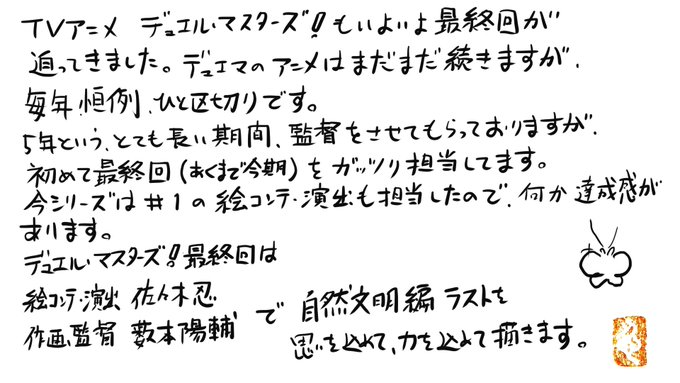 TVアニメ デュエル・マスターズ!もいよいよ最終回が
迫ってきました。デュエマのアニメはまだまだ続きますが、
毎年恒例、ひと区切りです。
5年という、とても長い期間、監督をさせてもらっておりますが、
初めて最終回(あくまで今期)をガッツリ担当してます。
今シリーズは#1の絵コンテ・演出も担当したので、何か達成感が
あります。
デュエル・マスターズ!最終回は
絵コンテ・演出 佐々木忍
作画監督 藪本陽輔 で 自然文明編ラストを
思いを込めて、力を込めて描きます。